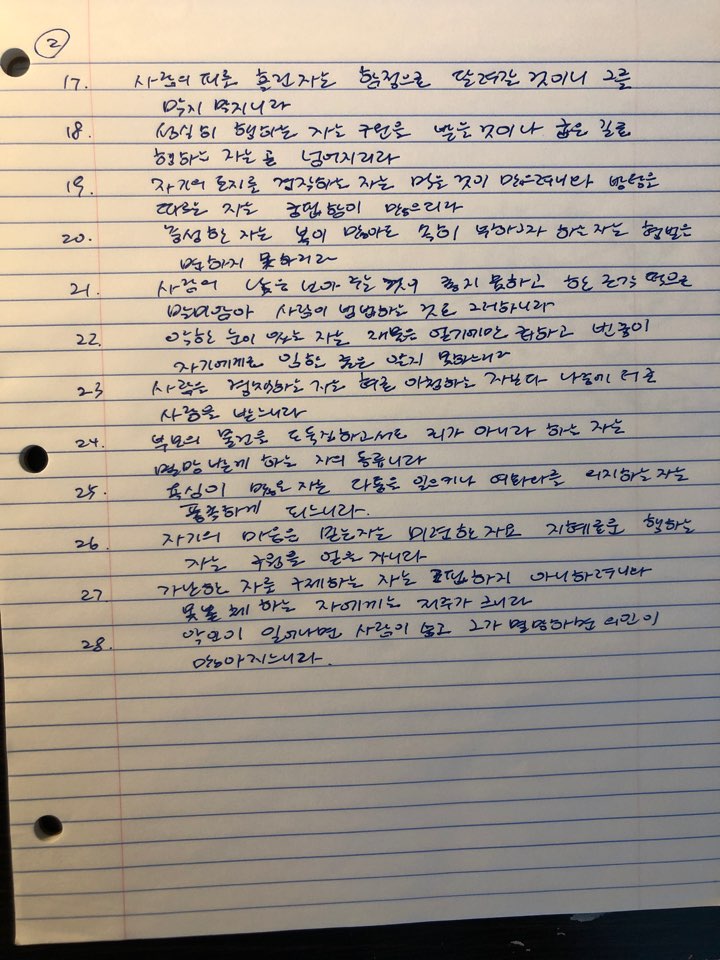 ②
17. 사람의 피를 흘린 자는 함정으로 달려갈 것이니 그를
막지 말지니라
18. 성실히 행하는 자는 구원을 받을 것이나 굽은 길로
행하는 자는 곧 넘어지리라
19. 자기의 토지를 경작하는 자는 먹을 것이 많으려니와 방탕을
따르는 자는 궁핍함이 많으리라
20. 충성된 자는 복이 많아도 속히 부하고자 하는 자는 형벌을
면하지 못하리라
21. 사람의 낯을 보아 주는 것이 좋지 못하고 한 조각 떡으로
말미암아 사람이 범법하는 것도 그러하니라
22. 악한 눈이 있는 자는 재물을 얻기에만 급하고 빈궁이
자기에게로 임할 줄은 알지 못하느니라
23 사람을 경책하는 자는 혀로 아첨하는 자보다 나중에 더욱
사랑을 받느니라
24. 부모의 물건을 도둑질하고서도 죄가 아니라 하는 자는
멸망 받게 하는 자의 동류니라
25. 욕심이 많은 자는 다툼을 일으키나 여호와를 의지하는 자는
풍족하게 되느니라.
26. 자기의 마음을 믿는 자는 미련한 자요 지혜로운 행하는
자는 구원을 얻을 자니라
27. 가난한 자를 구제하는 자는 궁핍하지 아니하려니와
못 본 체 하는 자에게는 저주가 크니라
28. 악인이 일어나면 사람이 숨고 그가 멸망하면 의인이
많아지느니라.